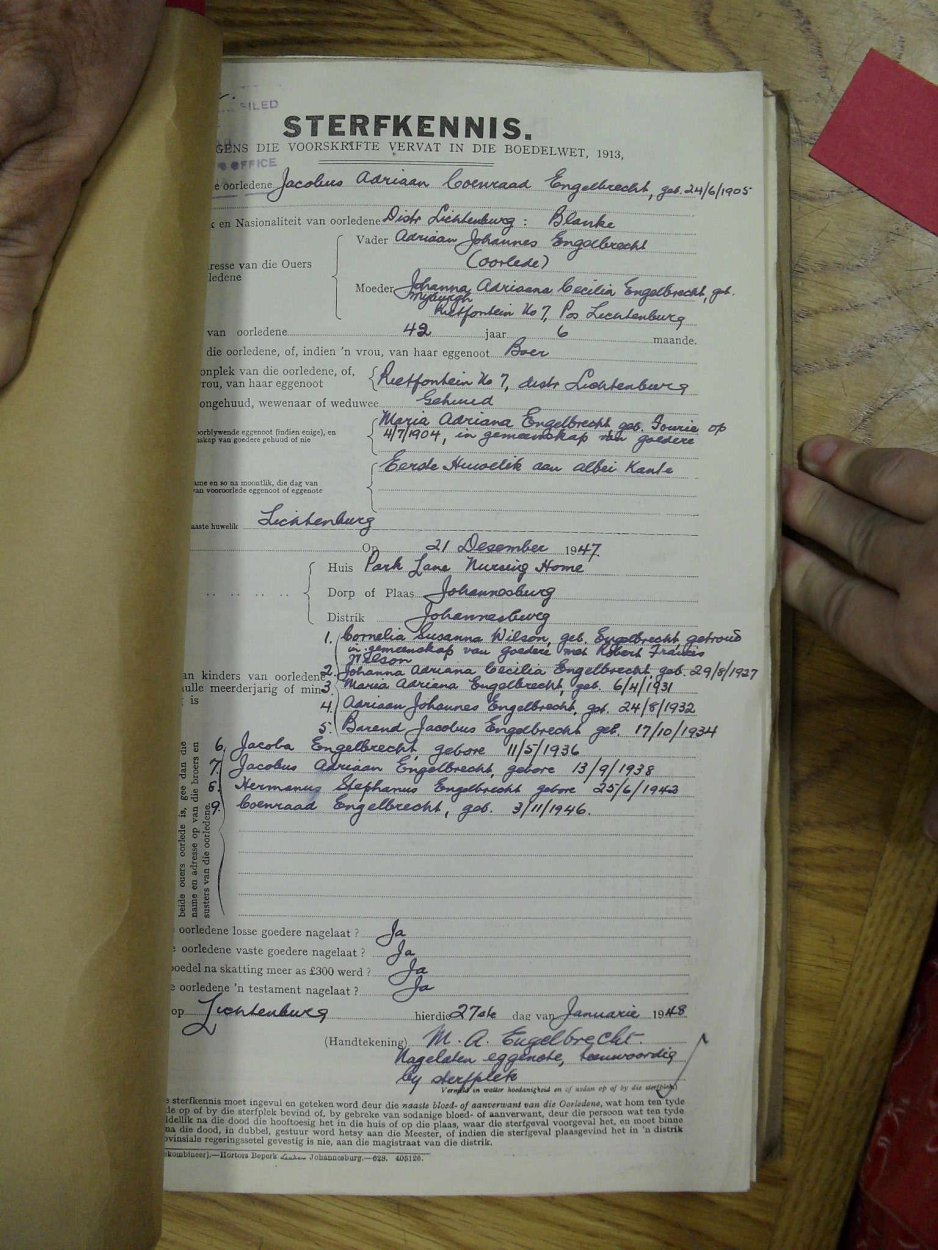 FILED
STERFKENNIS.
GENS DIE VOORSKRIFTE VERVAT IN DIE BOEDELWET, 1913,
OFFICE
e oorledene Jacobus Adriaan Coenraad Engelbrecht, geb. 24/6/1905
k en Nasionaliteit van oorledene Distr Lichtenburg : Blanke
Vader Adriaan Johannes Engelbrecht
(oorlede)
resse van die Ouers
ledene
Moeder Johanna Adriaana Cecilia Engelbrecht, geb.
Myburgh
Rietfontein No 7, Pos Lichtenburg
van oorledene 42 jaar 6 maande.
die oorledene, of, indien 'n vrou, van haar eggenoot Boer
onplek van die oorledene, of,
rou, van haar eggenoot
Rietfontein No 7, distr Lichtenburg
ongehuud, wewenaar of weduwee Gehuud
oorblywende eggenoot (indien enige), en
skap van goedere gehuud of nie
Maria Adriana Engelbrecht geb. Fourie op
4/7/1904, in gemeenskap van goedere
Eerste Huwelik aan albei Kante
ame en so na moontlik, die dag van
van vooroorlede eggenoot of eggenote
aaste huwelik Lichtenburg
Op 21 Desember 1947.
Huis Park Lane Nursing Home
Dorp of Plaas Johannesburg
Distrik Johannesburg
1. Cornelia Susanna Wilson, geb. Engelbrecht getroud
in gemeenskap van goedere met Robert Francis
Wilson
an kinders van oorledene
ulle meerderjarig of min
is
2. Johanna Adriana Cecilia Engelbrecht, geb. 29/8/1927
3. Maria Adriana Engelbrecht, geb. 6/4/1931
4. Adriaan Johannes Engelbrecht, geb. 24/8/1932
5. Barend Jacobus Engelbrecht geb. 17/10/1934
6. Jacoba Engelbrecht gebore 11/5/1936
7. Jacobus Adriaan Engelbrecht, gebore 13/9/1938
8. Hermanus Stephanus Engelbrecht gebore 25/6/1943
9. Coenraad Engelbrecht, geb. 3/11/1946.
beide ouers oorlede is, gee dan die
name en adresse op van die broers en
susters van die oorledene.
e oorledene losse goedere nagelaat ? Ja
e oorledene vaste goedere nagelaat ? Ja
boedel na skatting meer as £300 werd ? Ja
e oorledene 'n testament nagelaat ? Ja
op Lichtenburg hierdie 27ste dag van Januarie 1948
(Handtekening) M. A. Engelbrecht.
Nagelaten eggenote, teenwoordig
by sterfplek
Vermeld in watter hoedanigheid en of aldan op of by die sterfplek)
e sterfkennis moet ingevul en geteken word deur die naaste bloed- of aanverwant van die Oorledene, wat hom ten tyde
de op of by die sterfplek bevind of, by gebreke van sodanige bloed- of aanverwant, deur die persoon wat ten tyde
idellik na die dood die hooftoesig het in die huis of op die plaas, waar die sterfgeval voorgeval het, en moet binne
na die dood, in dubbel, gestuur word hetsy aan die Meester, of indien die sterfgeval plaasgevind het in 'n distrik
ovinsiale regeringssetel gevestig is nie, aan die magistraat van die distrik.
ekombineer).—Hortors Beperk Johannesburg.—628. 405126.